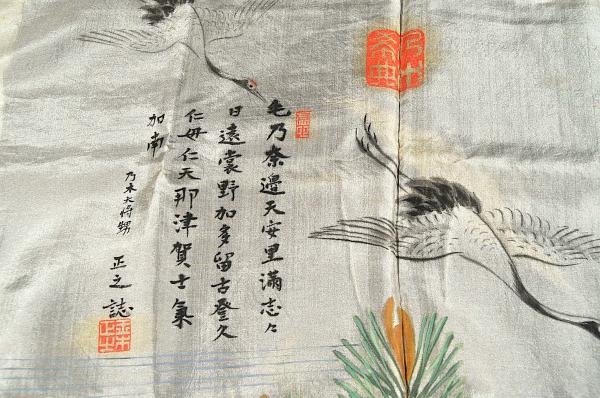 毛乃奈邊天安里満志々
日遠裳野加多留古登久
仁母仁天那津賀士氣
加南
乃木大将甥 正之誌